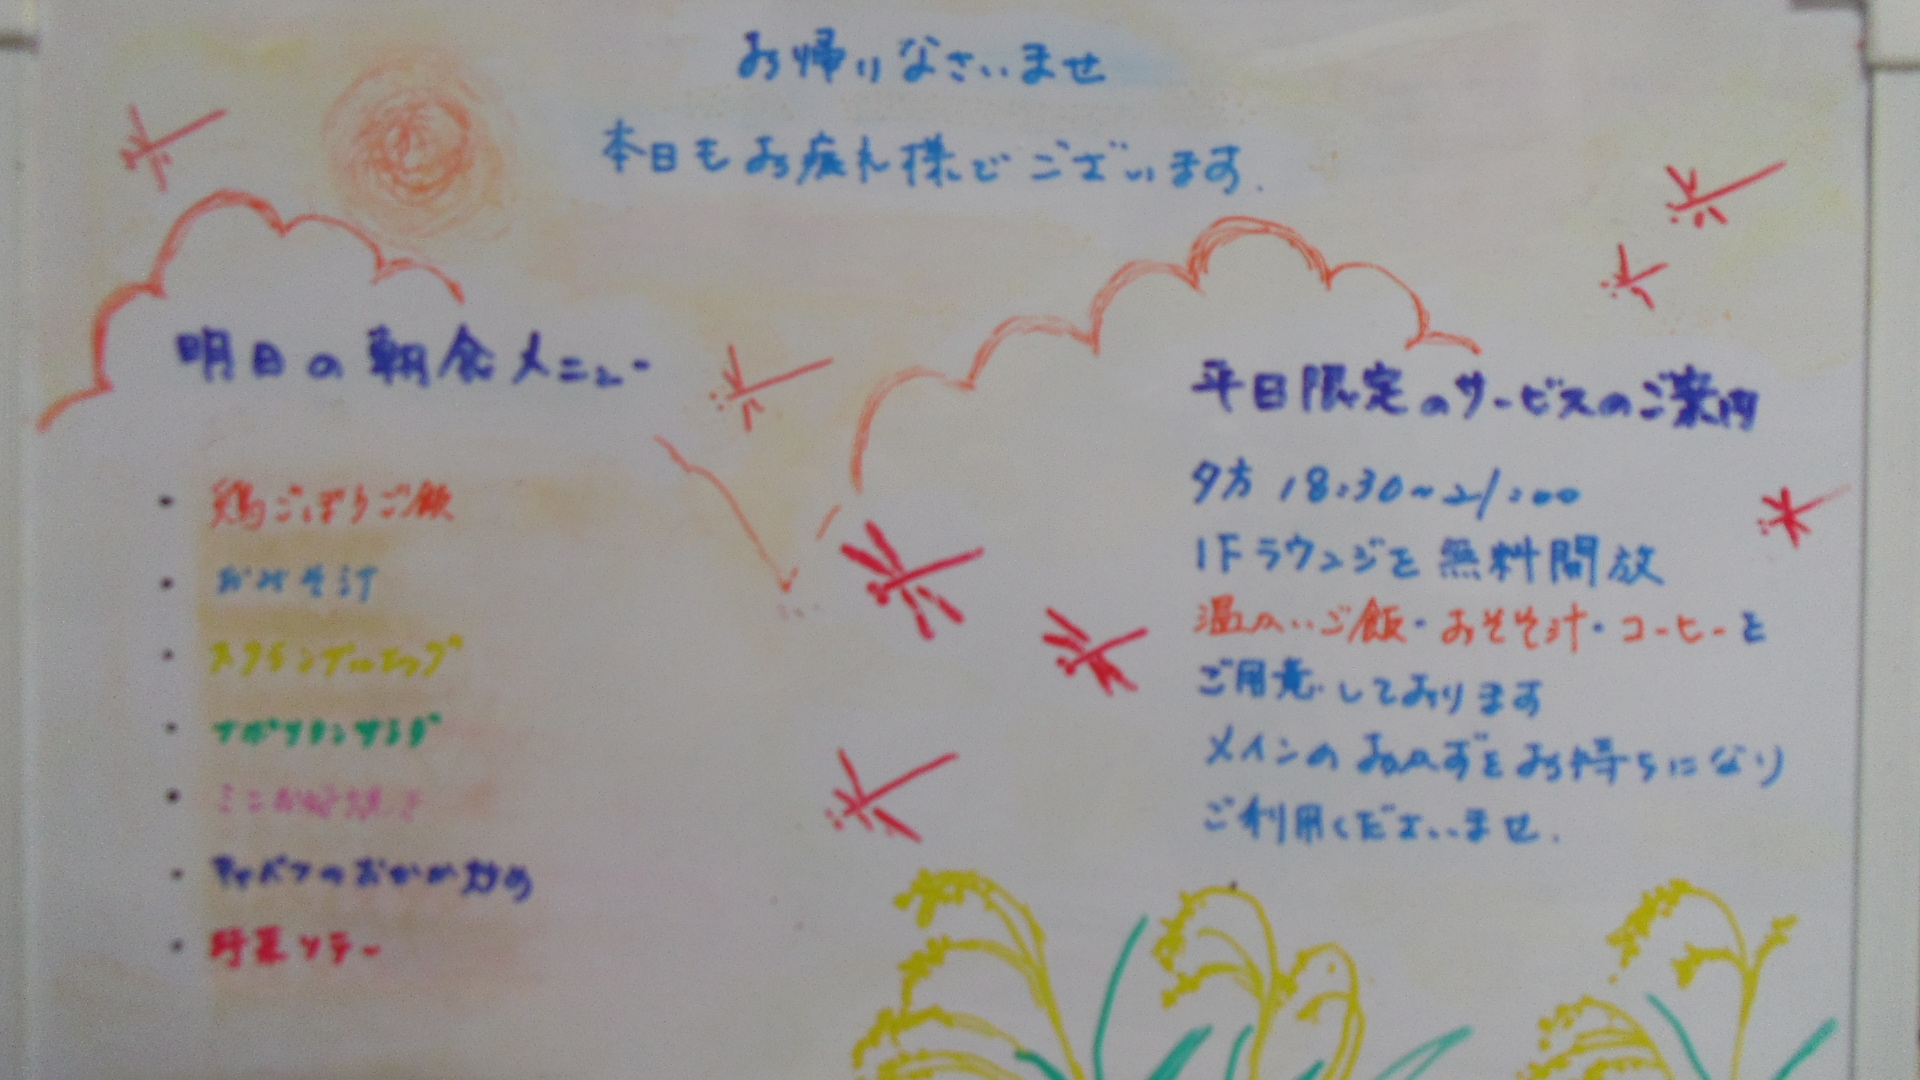 お帰りなさいませ
本日もお疲れ様でございます.
明日の朝食メニュー
・鶏ごぼうご飯
・おみそ汁
・スクランブルエッグ
・ナポリタンサラダ
・ミニお好焼き
・キャベツのおかか炒め
・野菜ソテー
平日限定のサービスのご案内
夕方 18:30~21:00
1Fラウンジを無料開放
温かいご飯・おみそ汁・コーヒーを
ご用意しております
メインのおかずをお持ちになり
ご利用くださいませ.